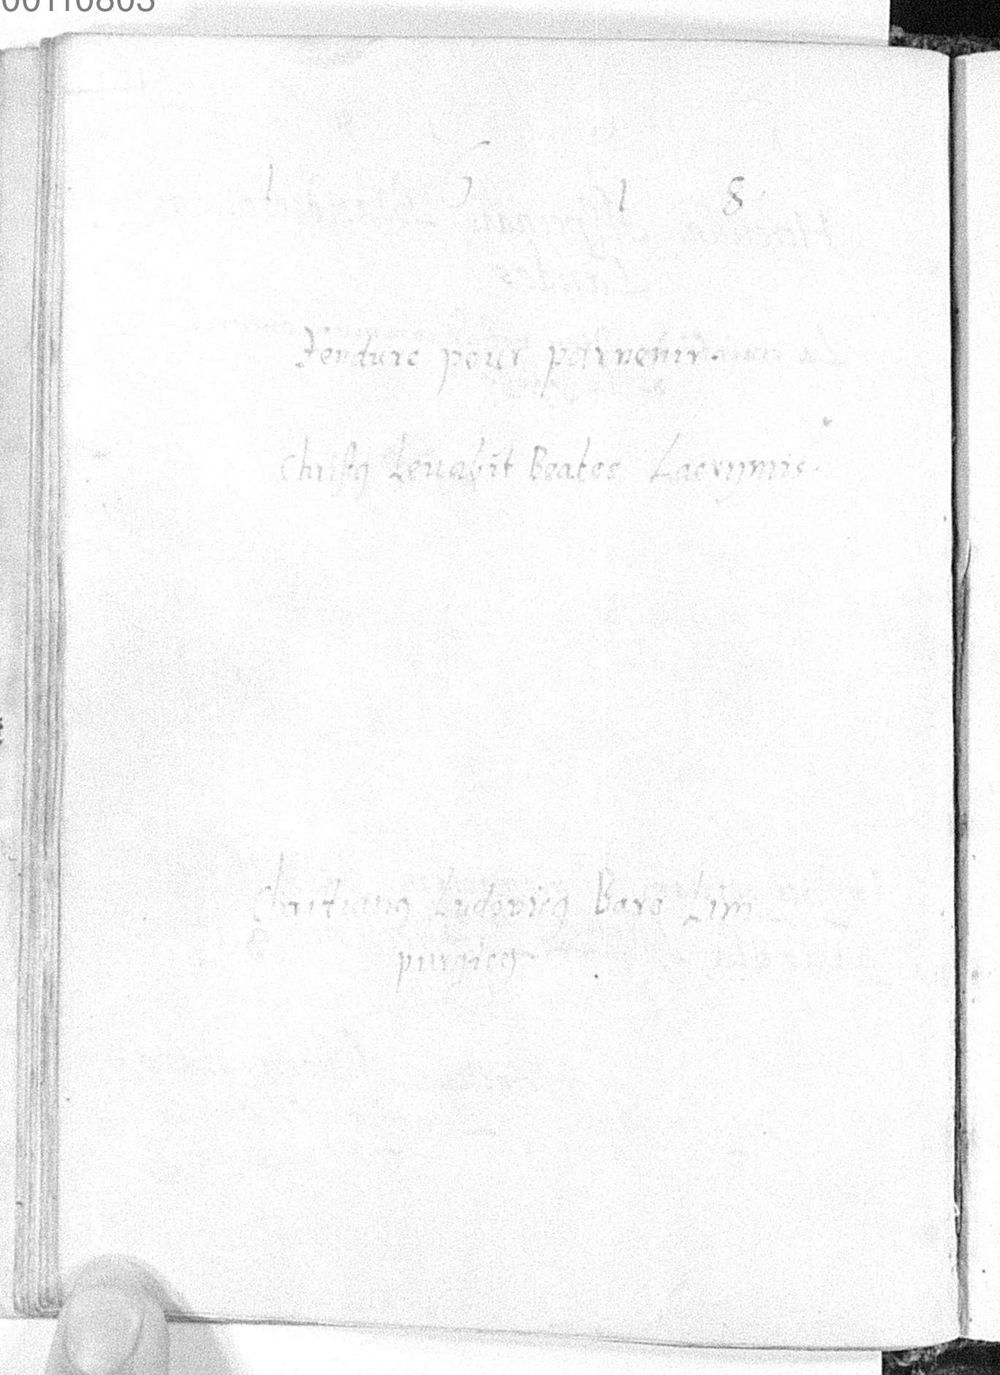 00110803
1 5 1 8
Jendure pour parvenir.
Christq Leuabit Beatos Lacrymis.
Christianq Ludovicq Baro Lim
purgicq